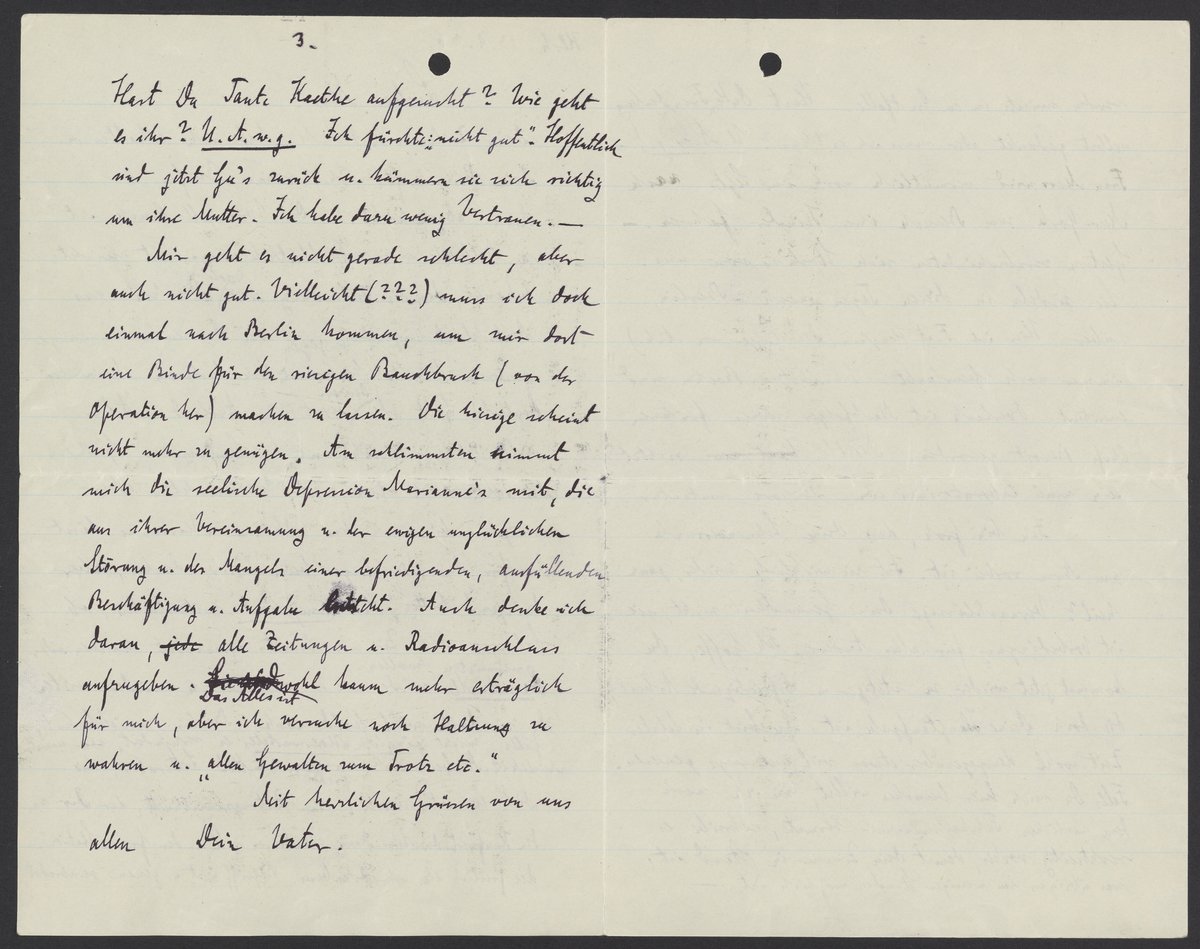 3.
Hast Du Tante Kaethe aufgesucht? Wie geht
es ihr? U. A. w. g. Ich fürchte: „nicht gut“. Hoffentlich
sind jetzt Gu's zurück u. kümmern sie sich richtig
um ihre Mutter. Ich habe dazu wenig Vertrauen. —
Mir geht es nicht gerade schlecht, aber
auch nicht gut. Vielleicht (???) muss ich doch
einmal nach Berlin kommen, um mir dort
eine Binde für den riesigen Bauchbruch (von der
Operation her) machen zu lassen. Die hiesige scheint
nicht mehr zu genügen. Am schlimmsten nimmt
mich die seelische Depression Marianne's mit, die
aus ihrer Vereinsamung u. der ewigen unglücklichen
Störung u. des Mangels einer befriedigenden, ausfüllenden
Beschäftigung u. Aufgabe . Auch denke ich
daran, jede alle Zeitungen u. Radioanschluss
aufzugeben. wohl kaum mehr erträglich
Das Alles ist
für mich, aber ich versuche noch Haltung zu
wahren u. „allen Gewalten zum Trotz etc.“
Mit herzlichen Grüssen von uns
allen Dein Vater.